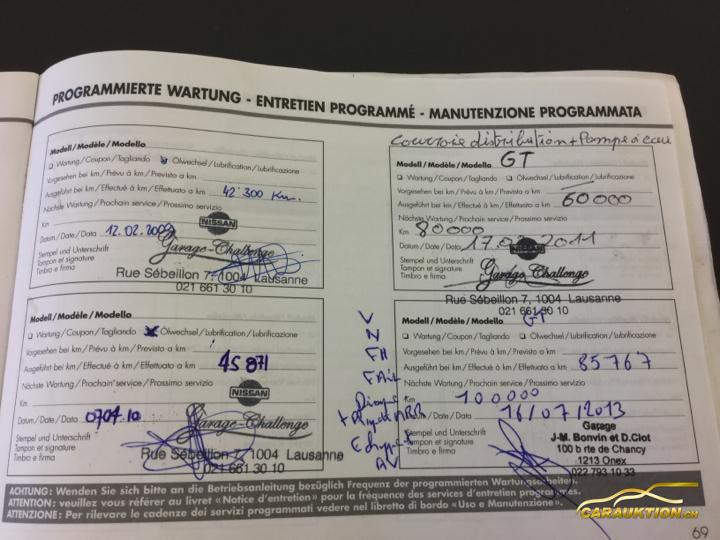 PROGRAMMIERTE WARTUNG - ENTRETIEN PROGRAMMÉ - MANUTENZIONE PROGRAMMATA
Modell / Modèle / Modello
Wartung / Coupon / Tagliando Ölwechsel / Lubrification / Lubrificazione
Vorgesehen bei km / Prévu à km / Previsto a km
Ausgeführt bei km / Effectué à km / Effettuato a km 42 300 Km.
Nächste Wartung / Prochain service / Prossimo servizio
Km
NISSAN
Datum / Date / Data 12.02.2009
Garage-Challenge
Stempel und Unterschrift
Tampon et signature
Timbro e firma
Rue Sébeillon 7, 1004 Lausanne
021 661 30 10
Modell / Modèle / Modello
Wartung / Coupon / Tagliando Ölwechsel / Lubrification / Lubrificazione
Vorgesehen bei km / Prévu à km / Previsto a km
Ausgeführt bei km / Effectué à km / Effettuato a km 45 871
Nächste Wartung / Prochain service / Prossimo servizio
NISSAN
Datum / Date / Data 0704.10
Garage-Challenge
Stempel und Unterschrift
Tampon et signature
Timbro e firma
Rue Sébeillon 7, 1004 Lausanne
021 661 30 10
courroie distribution + Pompe à eau
Modell / Modèle / Modello GT
Wartung / Coupon / Tagliando Ölwechsel / Lubrification / Lubrificazione
Vorgesehen bei km / Prévu à km / Previsto a km
Ausgeführt bei km / Effectué à km / Effettuato a km 60000
Nächste Wartung / Prochain service / Prossimo servizio
Km 80000
Datum / Date / Data 17. 2011
NISSAN
Stempel und Unterschrift
Tampon et signature
Timbro e firma
Garage-Challenge
Rue Sébeillon 7, 1004 Lausanne
021 661 30 10
Modell / Modèle / Modello GT
Wartung / Coupon / Tagliando Ölwechsel / Lubrification / Lubrificazione
Vorgesehen bei km / Prévu à km / Previsto a km
Ausgeführt bei km / Effectué à km / Effettuato a km 85767
Nächste Wartung / Prochain service / Prossimo servizio
Km 100000
Datum / Date / Data 16/07/2013
Stempel und Unterschrift
Tampon et signature
Timbro e firma
Garage
J-M. Bonvin et D.Clot
100 b rte de Chancy
1213 Onex
022 793 10 33
V
N
FH
AV
ACHTUNG: Wenden Sie sich bitte an die Betriebsanleitung bezüglich Frequenz der programmierten Wartungsarbeiten.
ATTENTION: veuillez vous référer au livret «Notice d'entretien» pour la fréquence des services d'entretien programmés.
ATTENZIONE: Per rilevare le cadenze dei servizi programmati vedere nel libretto di bordo «Uso e Manutenzione».
CARAUKTION.CH
69